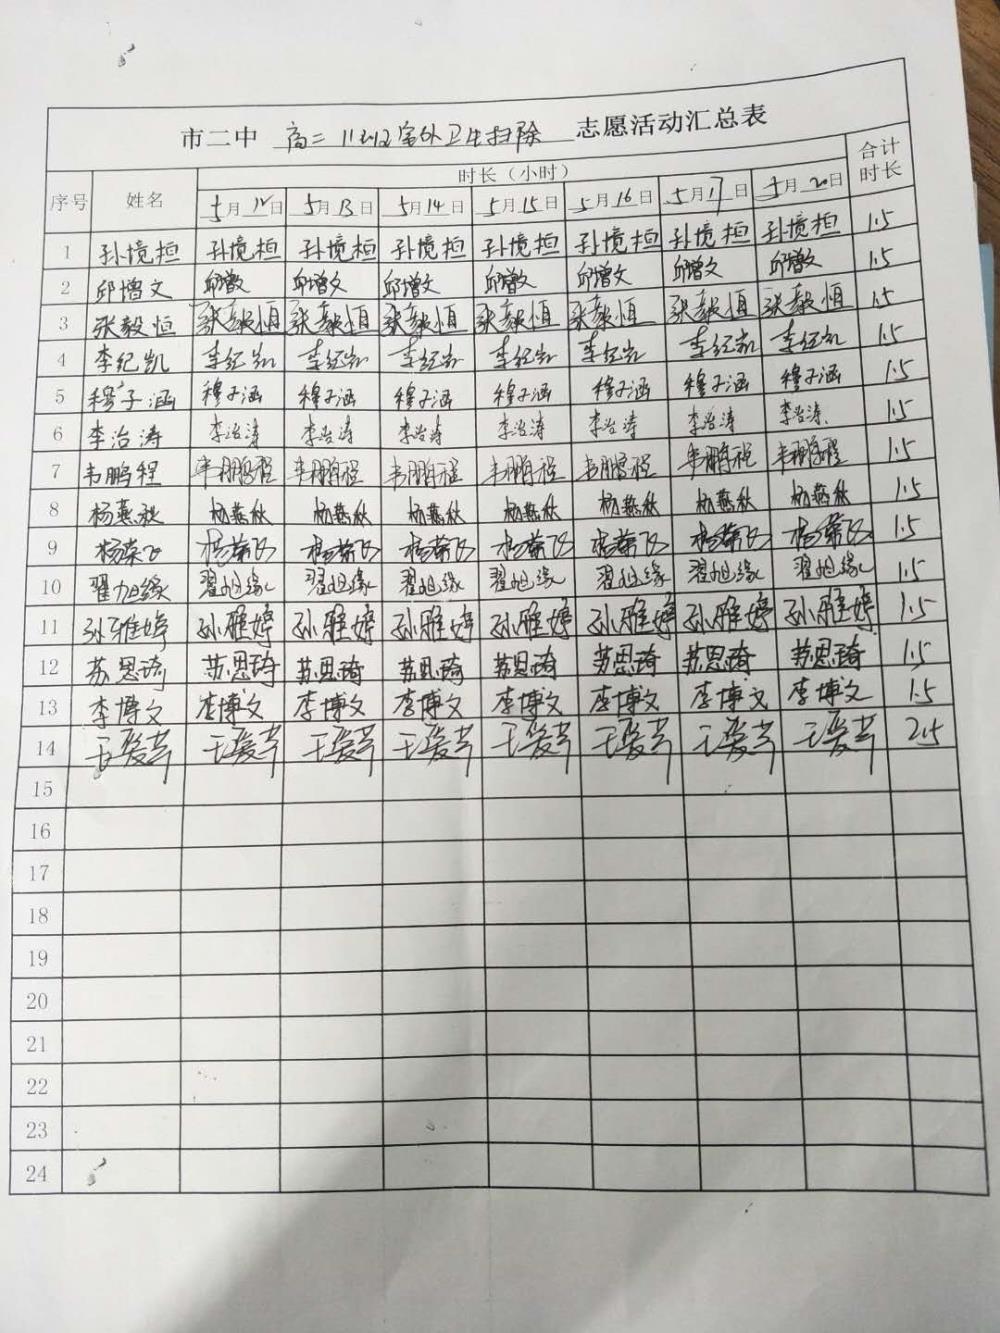 市二中 高二11班室外卫生扫除 志愿活动汇总表
序号 姓名 时长（小时） 合计时长
5月12日 5月13日 5月14日 5月15日 5月16日 5月17日 5月20日
1 孙境桓 孙境桓 孙境桓 孙境桓 孙境桓 孙境桓 孙境桓 孙境桓 1.5
2 邱增文 邱增文 邱增文 邱增文 邱增文 邱增文 邱增文 邱增文 1.5
3 张毅恒 张毅恒 张毅恒 张毅恒 张毅恒 张毅恒 张毅恒 张毅恒 1.5
4 李纪凯 李纪凯 李纪凯 李纪凯 李纪凯 李纪凯 李纪凯 李纪凯 1.5
5 穆子涵 穆子涵 穆子涵 穆子涵 穆子涵 穆子涵 穆子涵 穆子涵 1.5
6 李治涛 李治涛 李治涛 李治涛 李治涛 李治涛 李治涛 李治涛 1.5
7 韦鹏程 韦鹏程 韦鹏程 韦鹏程 韦鹏程 韦鹏程 韦鹏程 韦鹏程 1.5
8 杨燕秋 杨燕秋 杨燕秋 杨燕秋 杨燕秋 杨燕秋 杨燕秋 杨燕秋 1.5
9 杨荣飞 杨荣飞 杨荣飞 杨荣飞 杨荣飞 杨荣飞 杨荣飞 杨荣飞 1.5
10 翟旭缘 翟旭缘 翟旭缘 翟旭缘 翟旭缘 翟旭缘 翟旭缘 翟旭缘 1.5
11 孙雅婷 孙雅婷 孙雅婷 孙雅婷 孙雅婷 孙雅婷 孙雅婷 孙雅婷 1.5
12 苏思琦 苏思琦 苏思琦 苏思琦 苏思琦 苏思琦 苏思琦 苏思琦 1.5
13 李博文 李博文 李博文 李博文 李博文 李博文 李博文 李博文 1.5
14 王爱芹 王爱芹 王爱芹 王爱芹 王爱芹 王爱芹 王爱芹 王爱芹 2.5
15
16
17
18
19
20
21
22
23
24